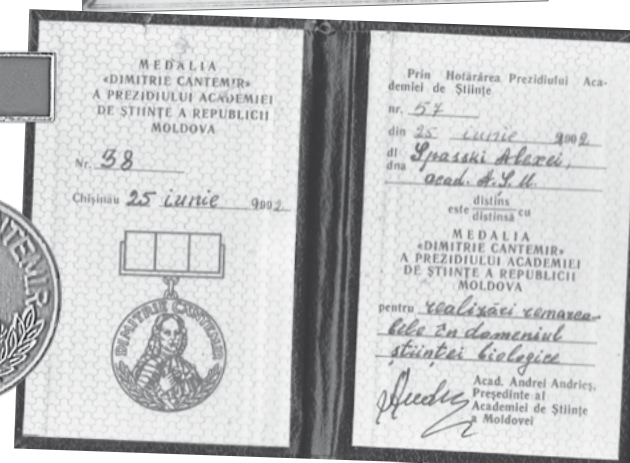 MEDALIA
«DIMITRIE CANTEMIR»
A PREZIDIULUI ACADEMIEI
DE ȘTIINȚE A REPUBLICII
MOLDOVA
Nr. 38
Chișinău 25 iunie 2002
DIMITRIE CANTEMIR
Prin Hotărârea Prezidiului Aca-
demiei de Științe
nr. 57
din 25 iunie 2002
dl Spasski Alexei,
dna
acad. A.Ș.M.
este distins cu
distinsă
MEDALIA
«DIMITRIE CANTEMIR»
A PREZIDIULUI ACADEMIEI
DE ȘTIINȚE A REPUBLICII
MOLDOVA
pentru realizări remarca-
bile în domeniul
științei biologice
Acad. Andrei Andrieș,
Președinte al
Academiei de Științe
a Moldovei
TEMIR